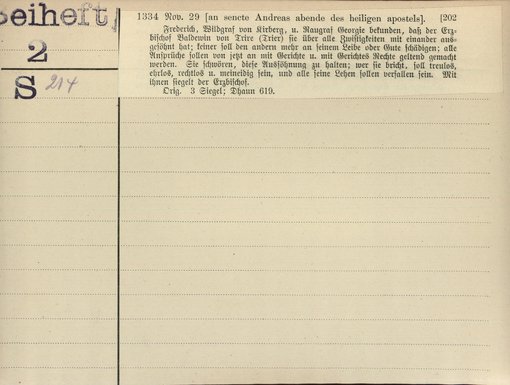 Beiheft
2
S 214
1334 Nov. 29 [an sencte Andreas abende des heiligen apostels]. [202
Frederich, Wildgraf von Kirberg, u. Raugraf Georgie bekunden, daß der Erz-
bischof Baldewin von Trire (Trier) sie über alle Zwistigkeiten mit einander aus-
gesöhnt hat; keiner soll den andern mehr an seinem Leibe oder Gute schädigen; alle
Ansprüche sollen von jetzt an mit Gerichte u. mit Gerichtes Rechte geltend gemacht
werden. Sie schwören, diese Aussöhnung zu halten; wer sie bricht, soll treulos,
ehrlos, rechtlos u. meineidig sein, und alle seine Lehen sollen verfallen sein. Mit
ihnen siegelt der Erzbischof.
Orig. 3 Siegel; Dhaun 619.